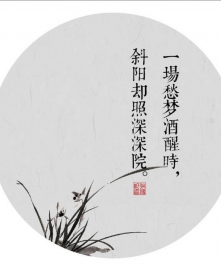 一場愁梦酒醒時，
斜阳却照深深院。